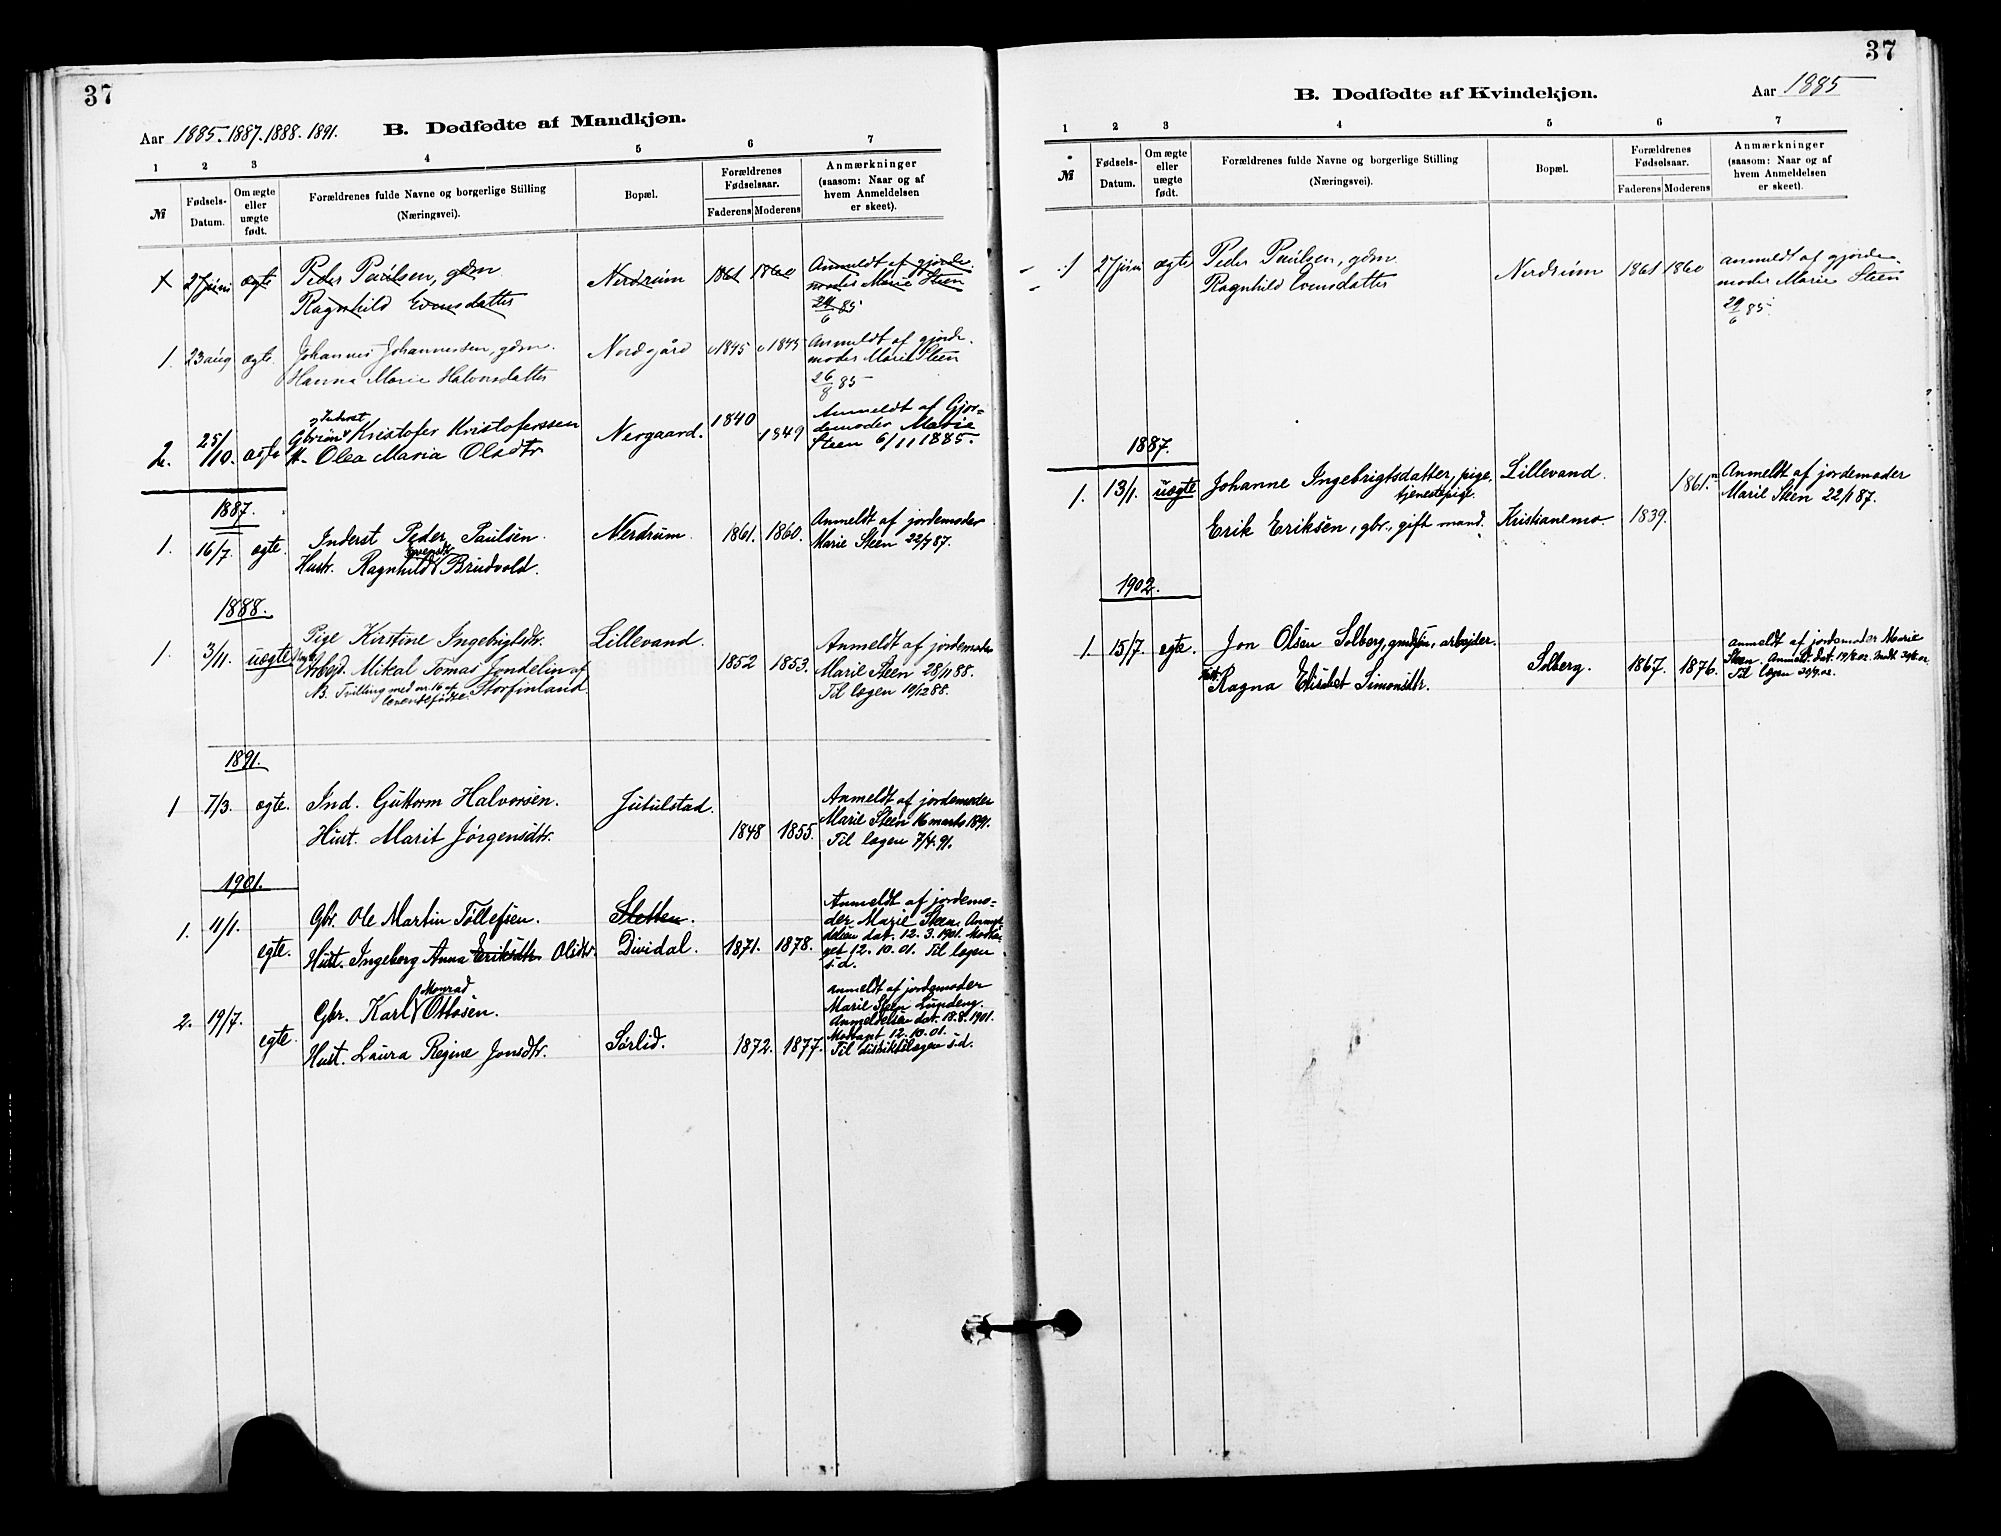 37
Aar 1885. 1887. 1888. 1891.
B. Dødfødte af Mandkjøn.
1 2 3 4 5 6 7
№
Fødsels-
Datum.
Om ægte
eller
uægte
født.
Forældrenes fulde Navne og borgerlige Stilling
(Næringsvei).
Bopæl.
Forældrenes
Fødselsaar.
Faderens Moderens
Anmærkninger
(saasom: Naar og af
hvem Anmeldelsen
er skeet).
1 27 juni ægte Peder Paulsen, gdm Nordrum 1861 1860 Anmeldt af gjorde
Ragnhild Evensdatter moder Marie Steen
29/6 85
1. 23 aug ægte Johannes Johannessen, gdm. Nordgård 1845 1845 Anmeldt af gjorde-
Hanna Marie Halvorsdatter moder Marie Steen
26/8 85
2. 25/10. ægte Inderst
Kristofer Kristoferssen Nergaard. 1840 1849 Anmeldt af Gjor-
H. Olea Maria Olsdtr demoder Marie
Steen 6/11 1885.
1887.
1. 16/7 ægte. Inderst Peder Paulsen. Nerdrum. 1861. 1860. Anmeldt af jordemoder
Hustr. Ragnhild Evensdtr Brudvold. Marie Steen 22/7 87.
1888.
1. 3/11. uægte Pige Kirstine Ingebrigtsdtr. Lillevand. 1852 1853. Anmeldt af jordemoder
Arbejd. Mikal Tomas Jondelin af Marie Steen 28/11 88.
NB. Tvilling med nr. 16 af Storfinland. Til lægen 19/12 88.
levendefødte.
1891.
1 7/3. ægte. Ind. Guttorm Halvorsen. Jutulstad. Anmeldt af jordemoder
Hust. Marit Jørgensdtr. 1848 1855. Marie Steen 16 marts 1891.
Til lægen 7/4. 91.
1901.
1. 11/1. Gbr. Ole Martin Tollefsen. Sletten. Anmeldt af jordemo-
egte. Hust. Ingeborg Anna Eriksdtr Olsdtr. Dividal. 1871. 1878. der Marie Steen. Anmel
delsen dat. 12.3.1901. Motta-
get 12.10.01. Til lægen
s.d.
2. 19/7. Gbr. Karl Monrad Ottosen. Anmeldt af jordemoder
egte. Hust. Laura Regine Jonsdtr. Sørlid. 1872. 1877. Marie Steen Lundeng.
Anmeldelsen dat. 18.8.1901.
Mottaget 12.10.01.
Til distriktslægen s.d.
37
B. Dødfødte af Kvindekjøn.
Aar 1885
1 2 3 4 5 6 7
№
Fødsels-
Datum.
Om ægte
eller
uægte
født.
Forældrenes fulde Navne og borgerlige Stilling
(Næringsvei).
Bopæl.
Forældrenes
Fødselsaar.
Faderens Moderens
Anmærkninger
(saasom: Naar og af
hvem Anmeldelsen
er skeet).
1 27 juni ægte Peder Paulsen, gdm. Nordrum 1861 1860 anmeldt af gjorde-
Ragnhild Evensdatter moder Marie Steen
29/6 85
1887.
1. 13/1. uægte Johanne Ingebrigtsdatter, pige, Lillevand. 1861. Anmeldt af jordemoder
tjenestepige. Marie Steen 22/1 87.
Erik Eriksen, gbr., gift mand. Kristianemo. 1839.
1902.
1. 15/7. egte. Jon Olsen Solberg, arbejder. Solberg. 1867. 1876. anmeldt af jordemoder Marie
Ragna Elisabet Simonsdtr. Steen. Anmelt. dat. 19/8.02.
Til lægen